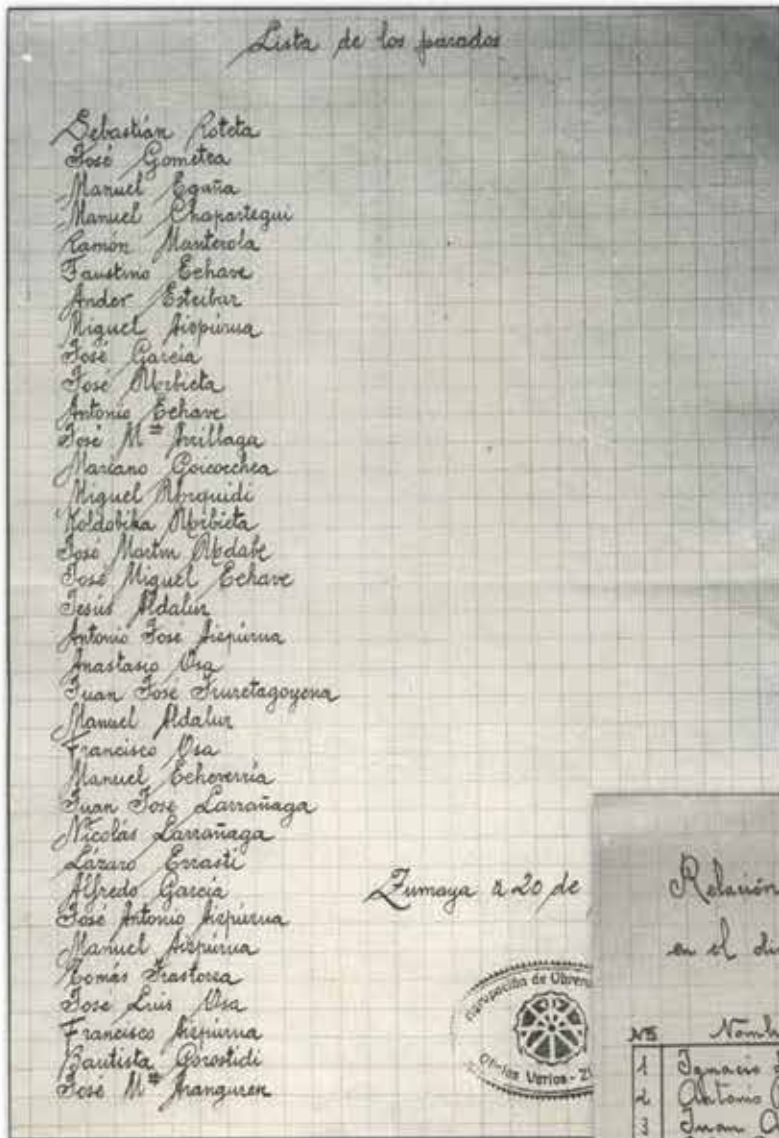 Lista de los parados
Sebastián Roteta
José Gometza
Manuel Egaña
Manuel Chapartegui
Ramón Manterola
Faustino Echave
Ander Esteibar
Miguel Aizpúrua
José García
José Urbieta
Antonio Echave
José Mª Arrillaga
Mariano Goicoechea
Miguel Urquidi
Koldobika Urbieta
José Martin Uzdabe
José Miguel Echave
Jesús Aldalur
Antonio José Aizpúrua
Anastasio Osa
Juan José Iruretagoyena
Manuel Aldalur
Francisco Osa
Manuel Echeverría
Juan José Larrañaga
Nicolás Larrañaga
Lázaro Errasti
Alfredo García
José Antonio Aizpúrua
Manuel Aizpúrua
Tomás Trastorza
José Luis Osa
Francisco Aizpúrua
Bautista Gorostidi
José Mª Aranguren
Zumaya a 20 de
Agrupación de Obreros
Oficios Varios - Z
Relación
en el di
Nº Nomb
1 Ignacio
2 Antonio
3 Juan